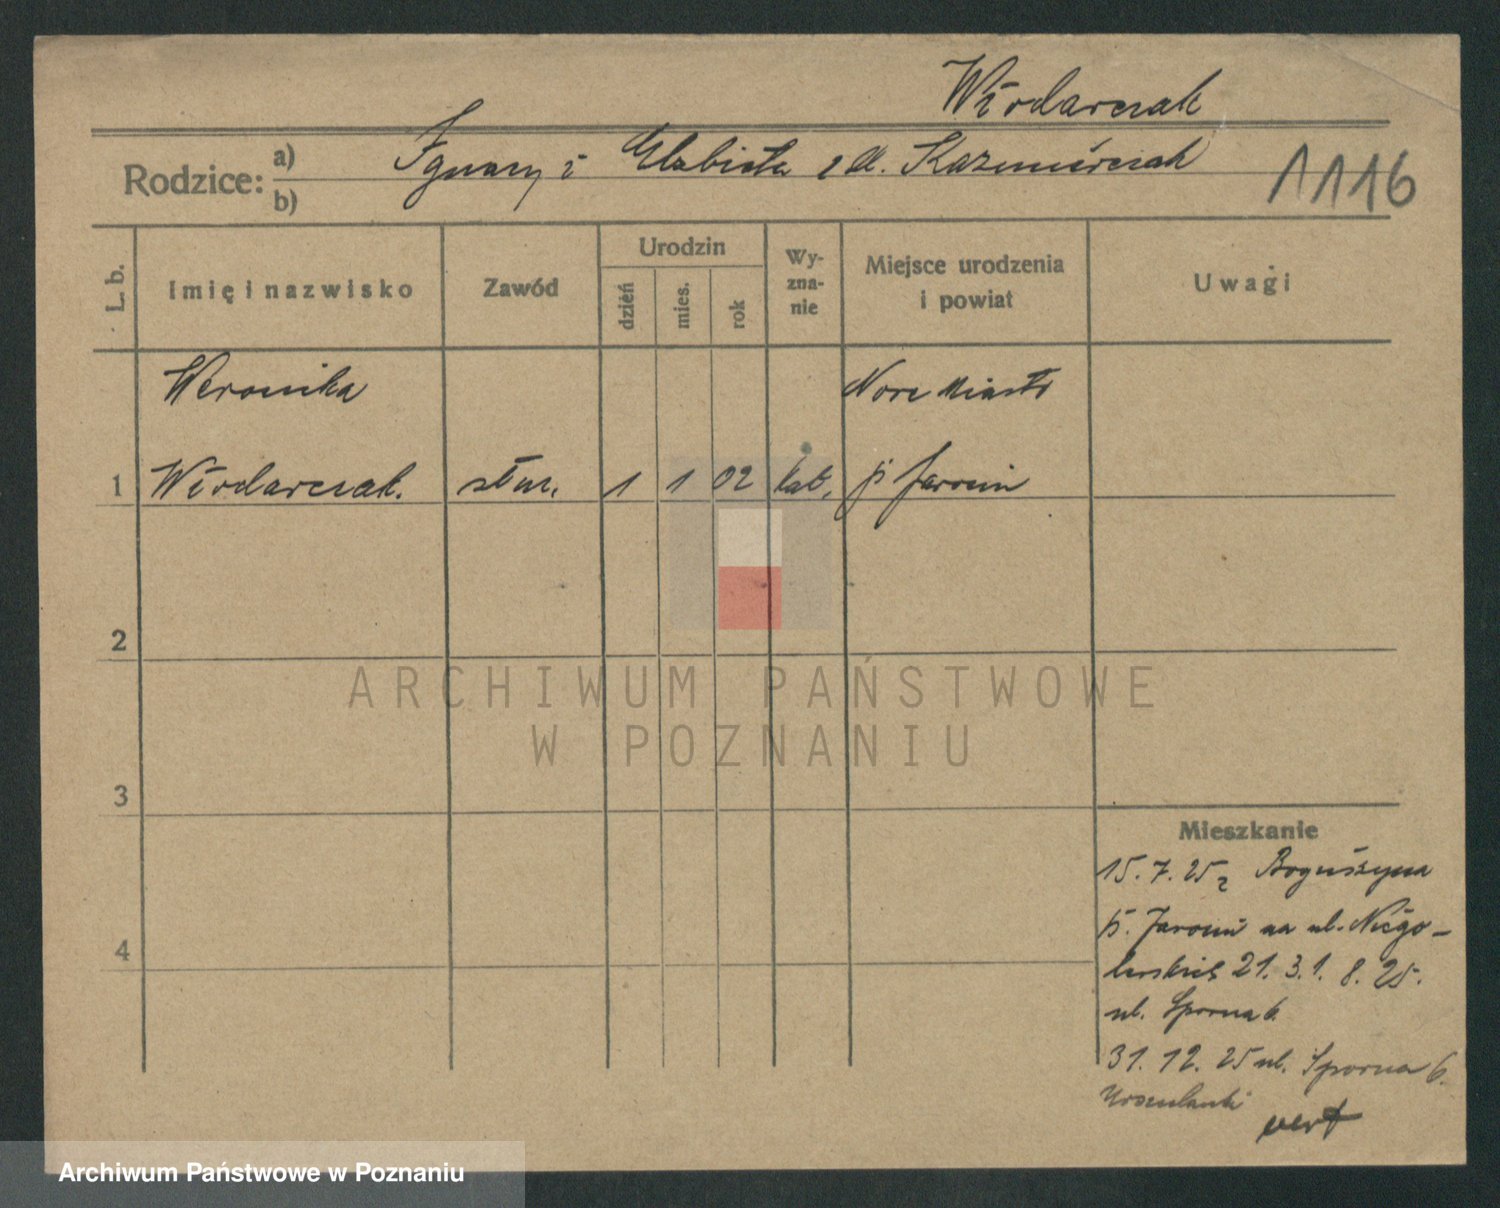 Włodarczak
Rodzice: a) Ignacy i Elżbieta z d. Kaźmierczak
b)
1116
L. b.
Imię i nazwisko
Zawód
Urodzin
dzień
mies.
rok
Wy-
zna-
nie
Miejsce urodzenia
i powiat
Uwagi
Weronika Nowe Miasto
1 Włodarczak. służ. 1 1 02 kat. p Jarocin
2
ARCHIWUM PAŃSTWOWE
W POZNANIU
3
4
Mieszkanie
15.7.25 z Boguszyna
p. Jarocin na ul. Niego-
lewskich 21. 3.1. 8. 25.
ul. Sporna 6
31. 12. 25 ul. Sporna 6.
Urszulanki
vert
Archiwum Państwowe w Poznaniu